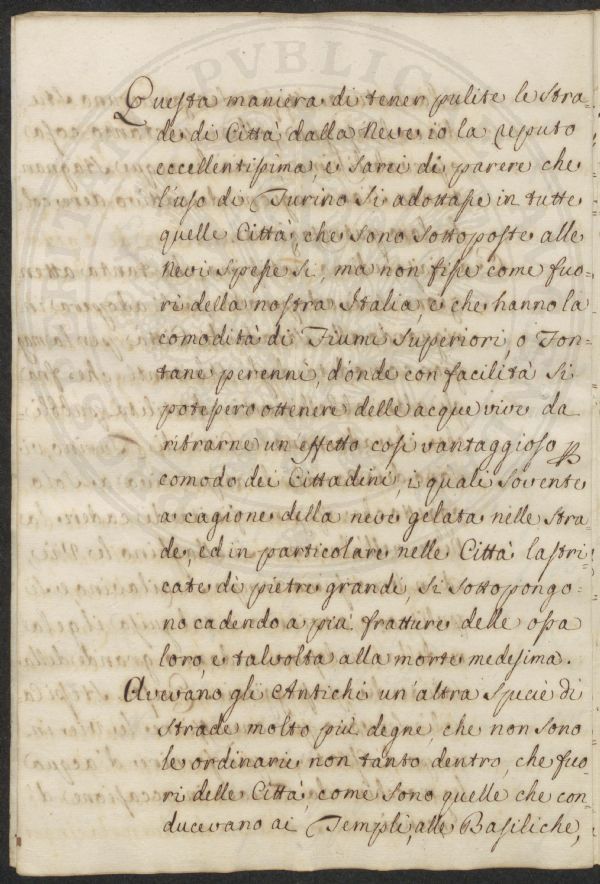 Questa maniera di tener pulite le stra-
de di Città dalla Neve io la reputo
eccellentissima, e sarei di parere che
l'uso di Turino si adottasse in tutte
quelle Città, che sono sottoposte alle
Nevi spesse sì, ma non fisse come fuo-
ri della nostra Italia e che hanno la
comodità di Fiumi superiori, o Fon-
tane perenni, d'onde con facilità si
potessero ottenere delle acque vive da
ritrarne un effetto così vantaggioso p
comodo dei Cittadini, i quali sovente
a cagione della neve gelata nelle stra
de, ed in particolare nelle Città lastri
cate di pietre grandi, si sottopongo-
no cadendo a più fratture delle ossa
loro, e talvolta alla morte medesima.
Avevano gli Antichi un'altra specie di
strade molto più degne, che non sono
le ordinarie non tanto dentro, che fuo-
ri delle Città, come sono quelle che con
ducevano ai Templi, alle Basiliche,